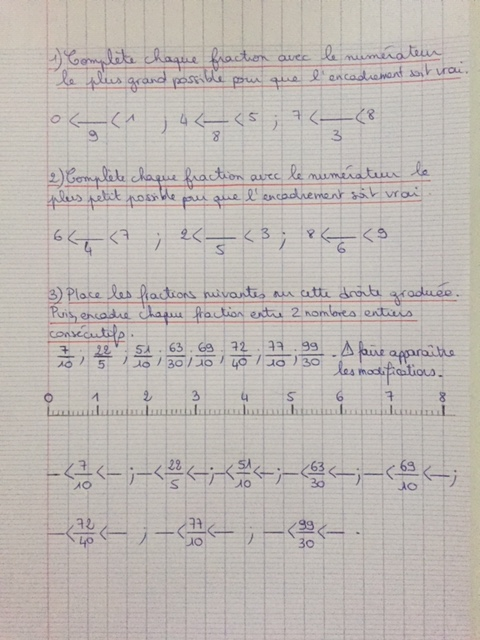 1) Complète chaque fraction avec le numérateur
le plus grand possible pour que l'encadrement soit vrai.
0 < __/9 < 1 ; 4 < __/8 < 5 ; 7 < __/3 < 8
2) Complète chaque fraction avec le numérateur le
plus petit possible pour que l'encadrement soit vrai
6 < __/4 < 7 ; 2 < __/5 < 3 ; 8 < __/6 < 9
3) Place les fractions suivantes sur cette droite graduée.
Puis, encadre chaque fraction entre 2 nombres entiers
consécutifs.
7/10 ; 22/5 ; 51/10 ; 63/30 ; 69/10 ; 72/40 ; 77/10 ; 99/30 . △ faire apparaître
les modifications.
0 1 2 3 4 5 6 7 8
— < 7/10 < — ; — < 22/5 < — ; < 51/10 < — ; — < 63/30 < — ; — < 69/10 < — ;
— < 72/40 < — ; — < 77/10 < — ; — < 99/30 < — .